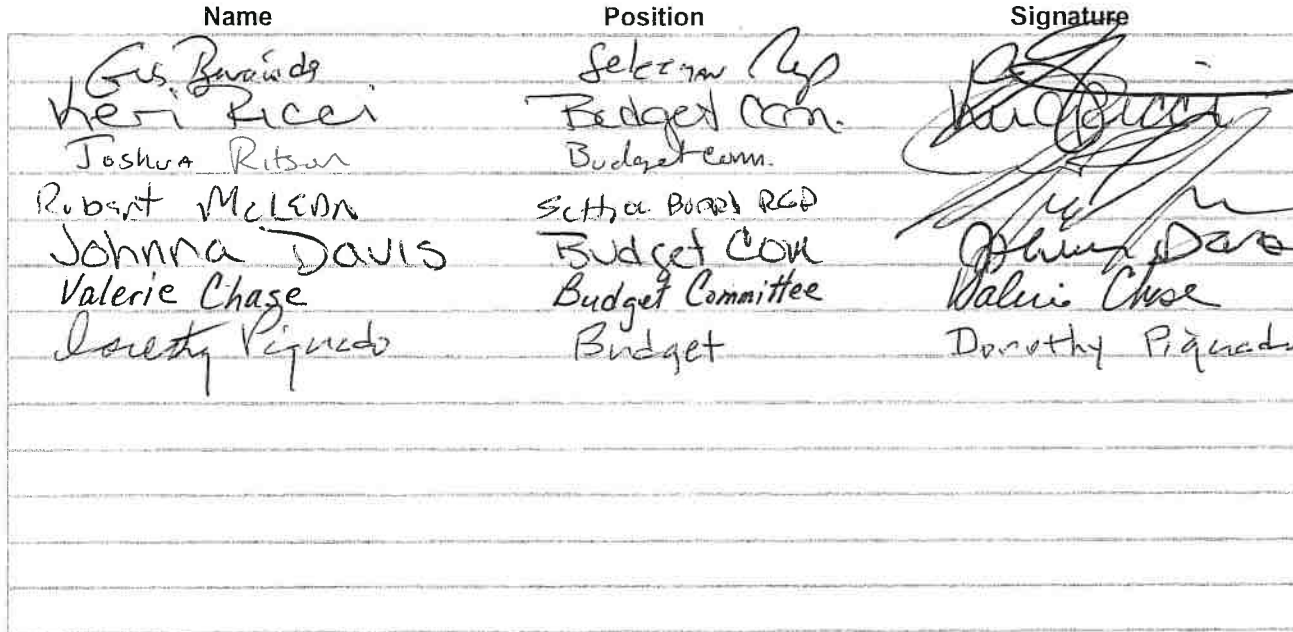 Name Position Signature
Gus Rep
Keri Ricci Budget Com. Keri Ricci
Joshua Ritson Budget comm.
Robert McLEOD School BOARD REP
Johnna Davis Budget Com Johnna Davis
Valerie Chase Budget Committee Valerie Chase
Dorothy Piquado Budget Dorothy Piquado